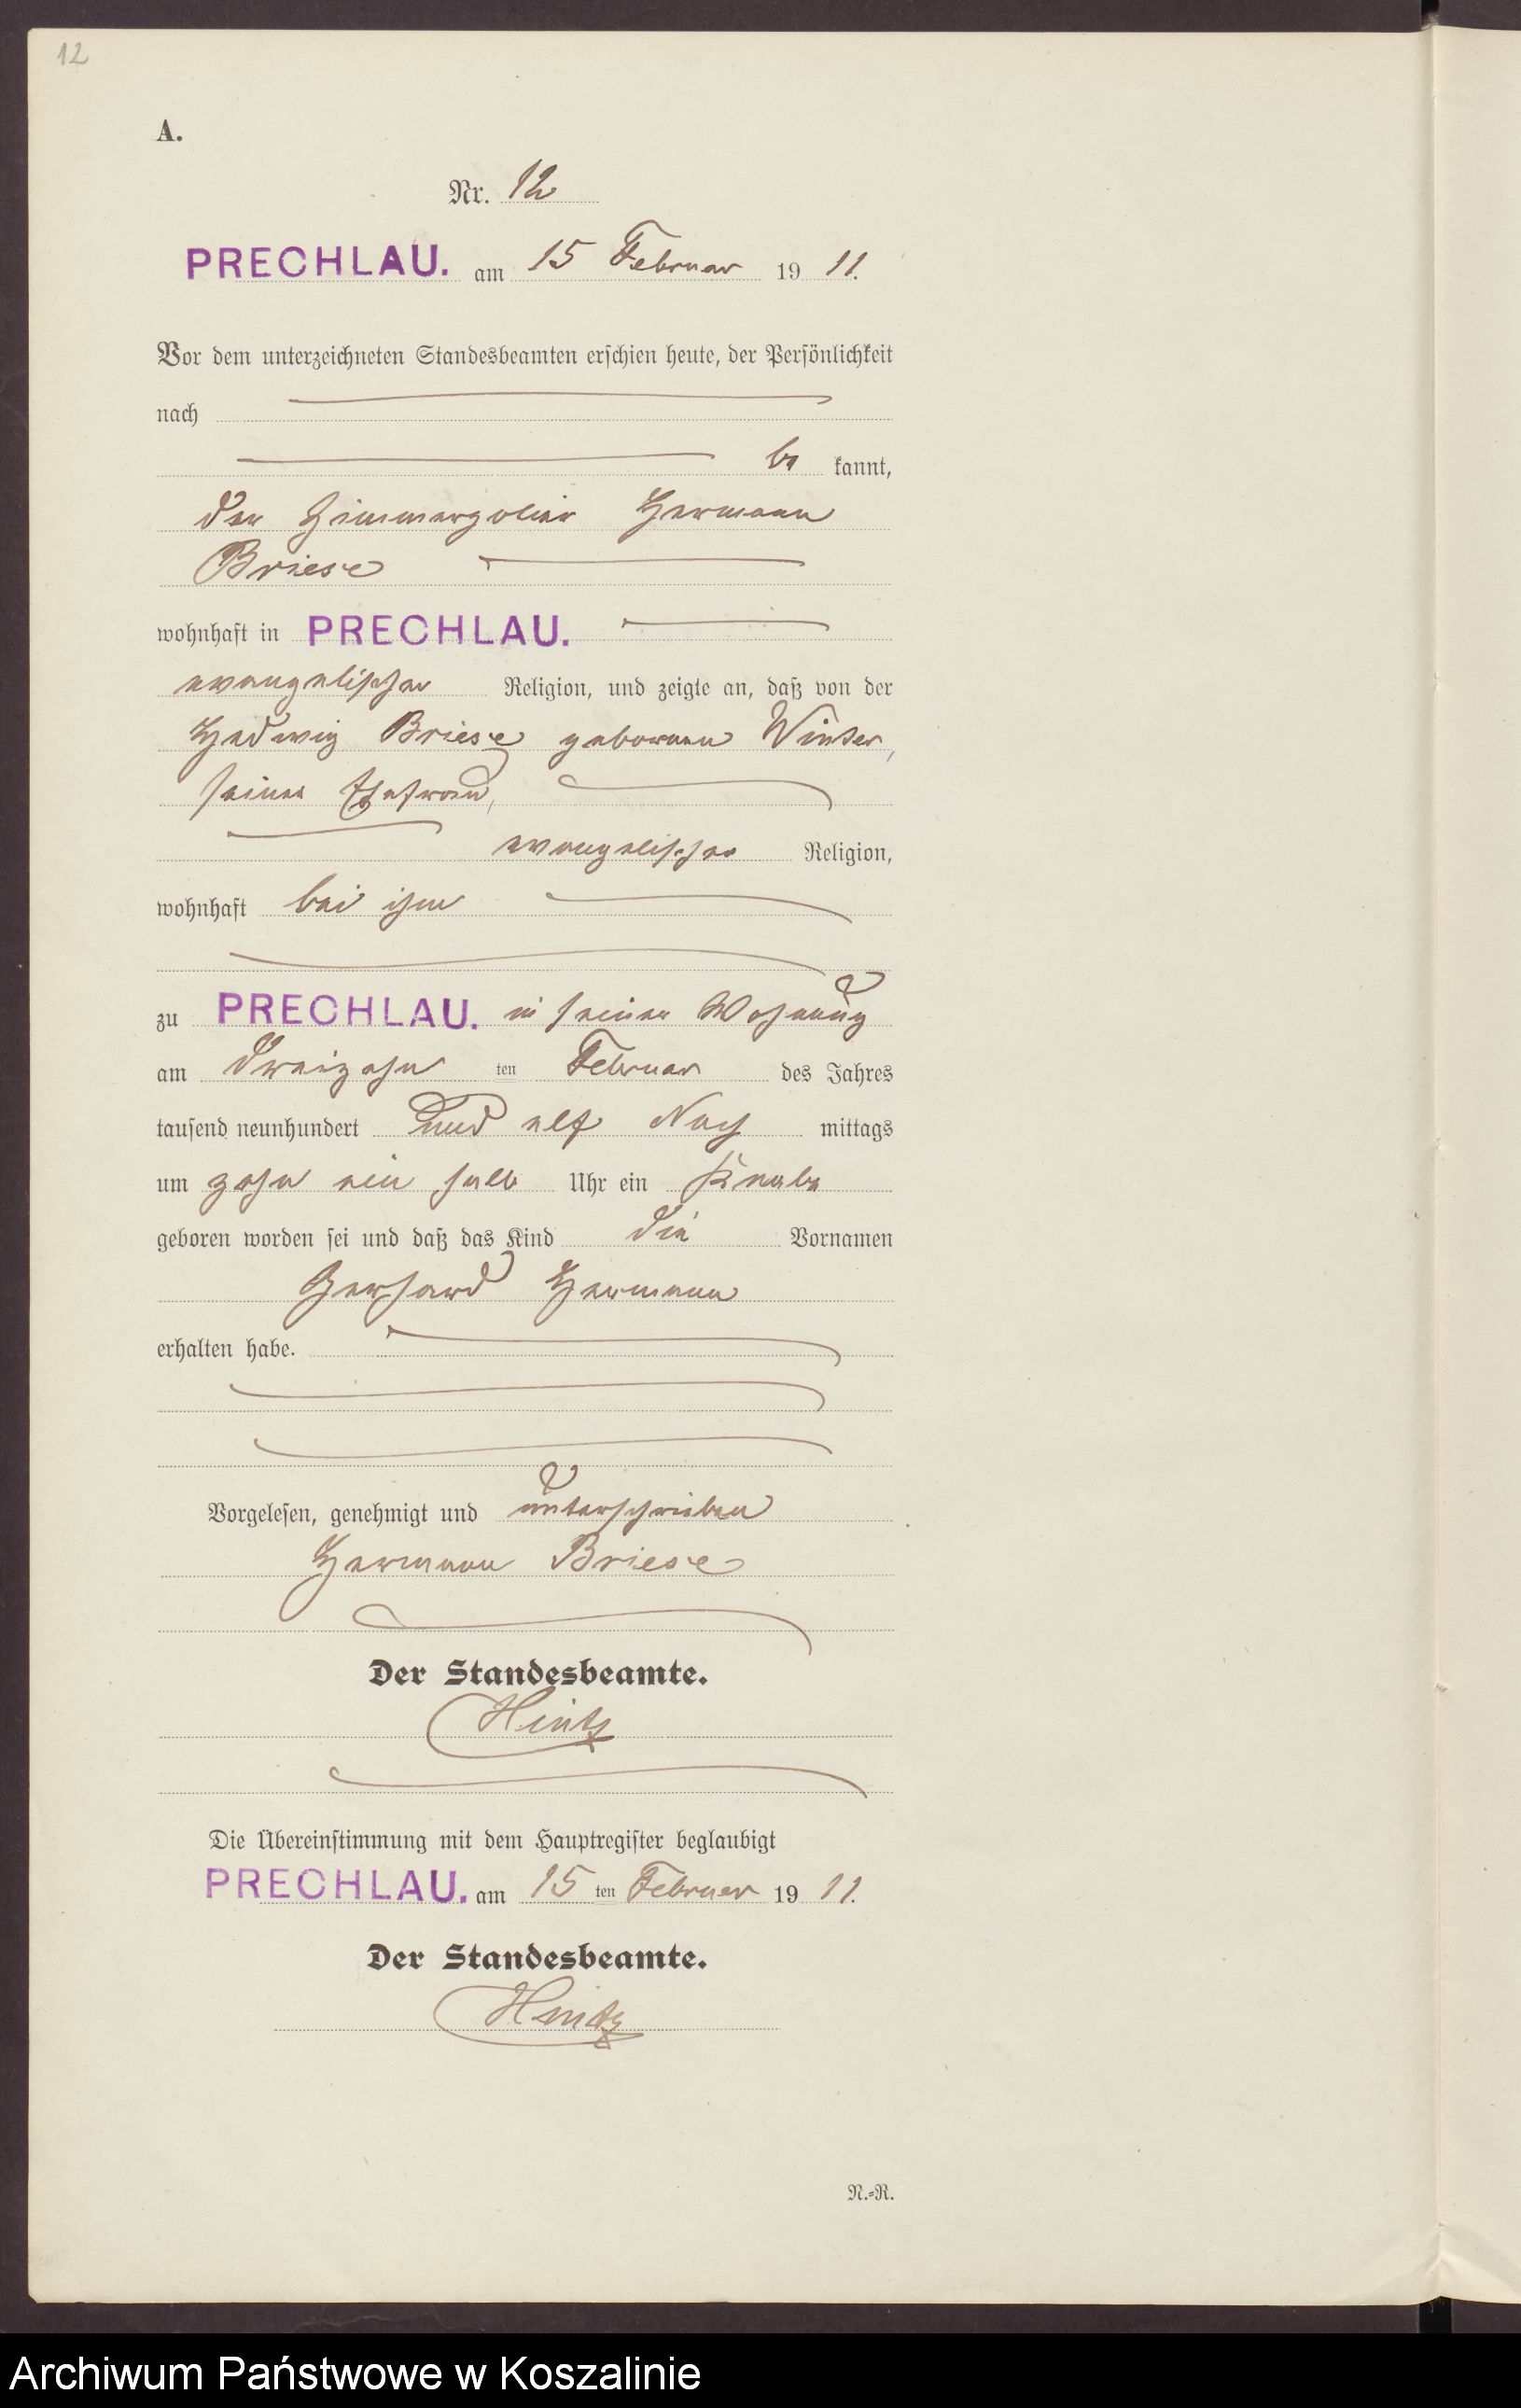 12
A.
Nr. 12
PRECHLAU. am 15 Februar 19 11.
Vor dem unterzeichneten Standesbeamten erschien heute, der Persönlichkeit
nach
be kannt,
der Zimmerpolier Hermann
Briese
wohnhaft in PRECHLAU.
evangelischer Religion, und zeigte an, daß von der
Hedwig Briese geborenen Winter,
seiner Ehefrau,
evangelischer Religion,
wohnhaft bei ihm
zu PRECHLAU. in seiner Wohnung
am dreizehn ten Februar des Jahres
tausend neunhundert und elf Nach mittags
um zehn ein halb Uhr ein Knabe
geboren worden sei und daß das Kind die Vornamen
Gerhard Hermann
erhalten habe.
Vorgelesen, genehmigt und unterschrieben
Hermann Briese
Der Standesbeamte.
Hintz
Die Übereinstimmung mit dem Hauptregister beglaubigt
PRECHLAU. am 15 ten Februar 19 11.
Der Standesbeamte.
Hintz
N.=R.
Archiwum Państwowe w Koszalinie